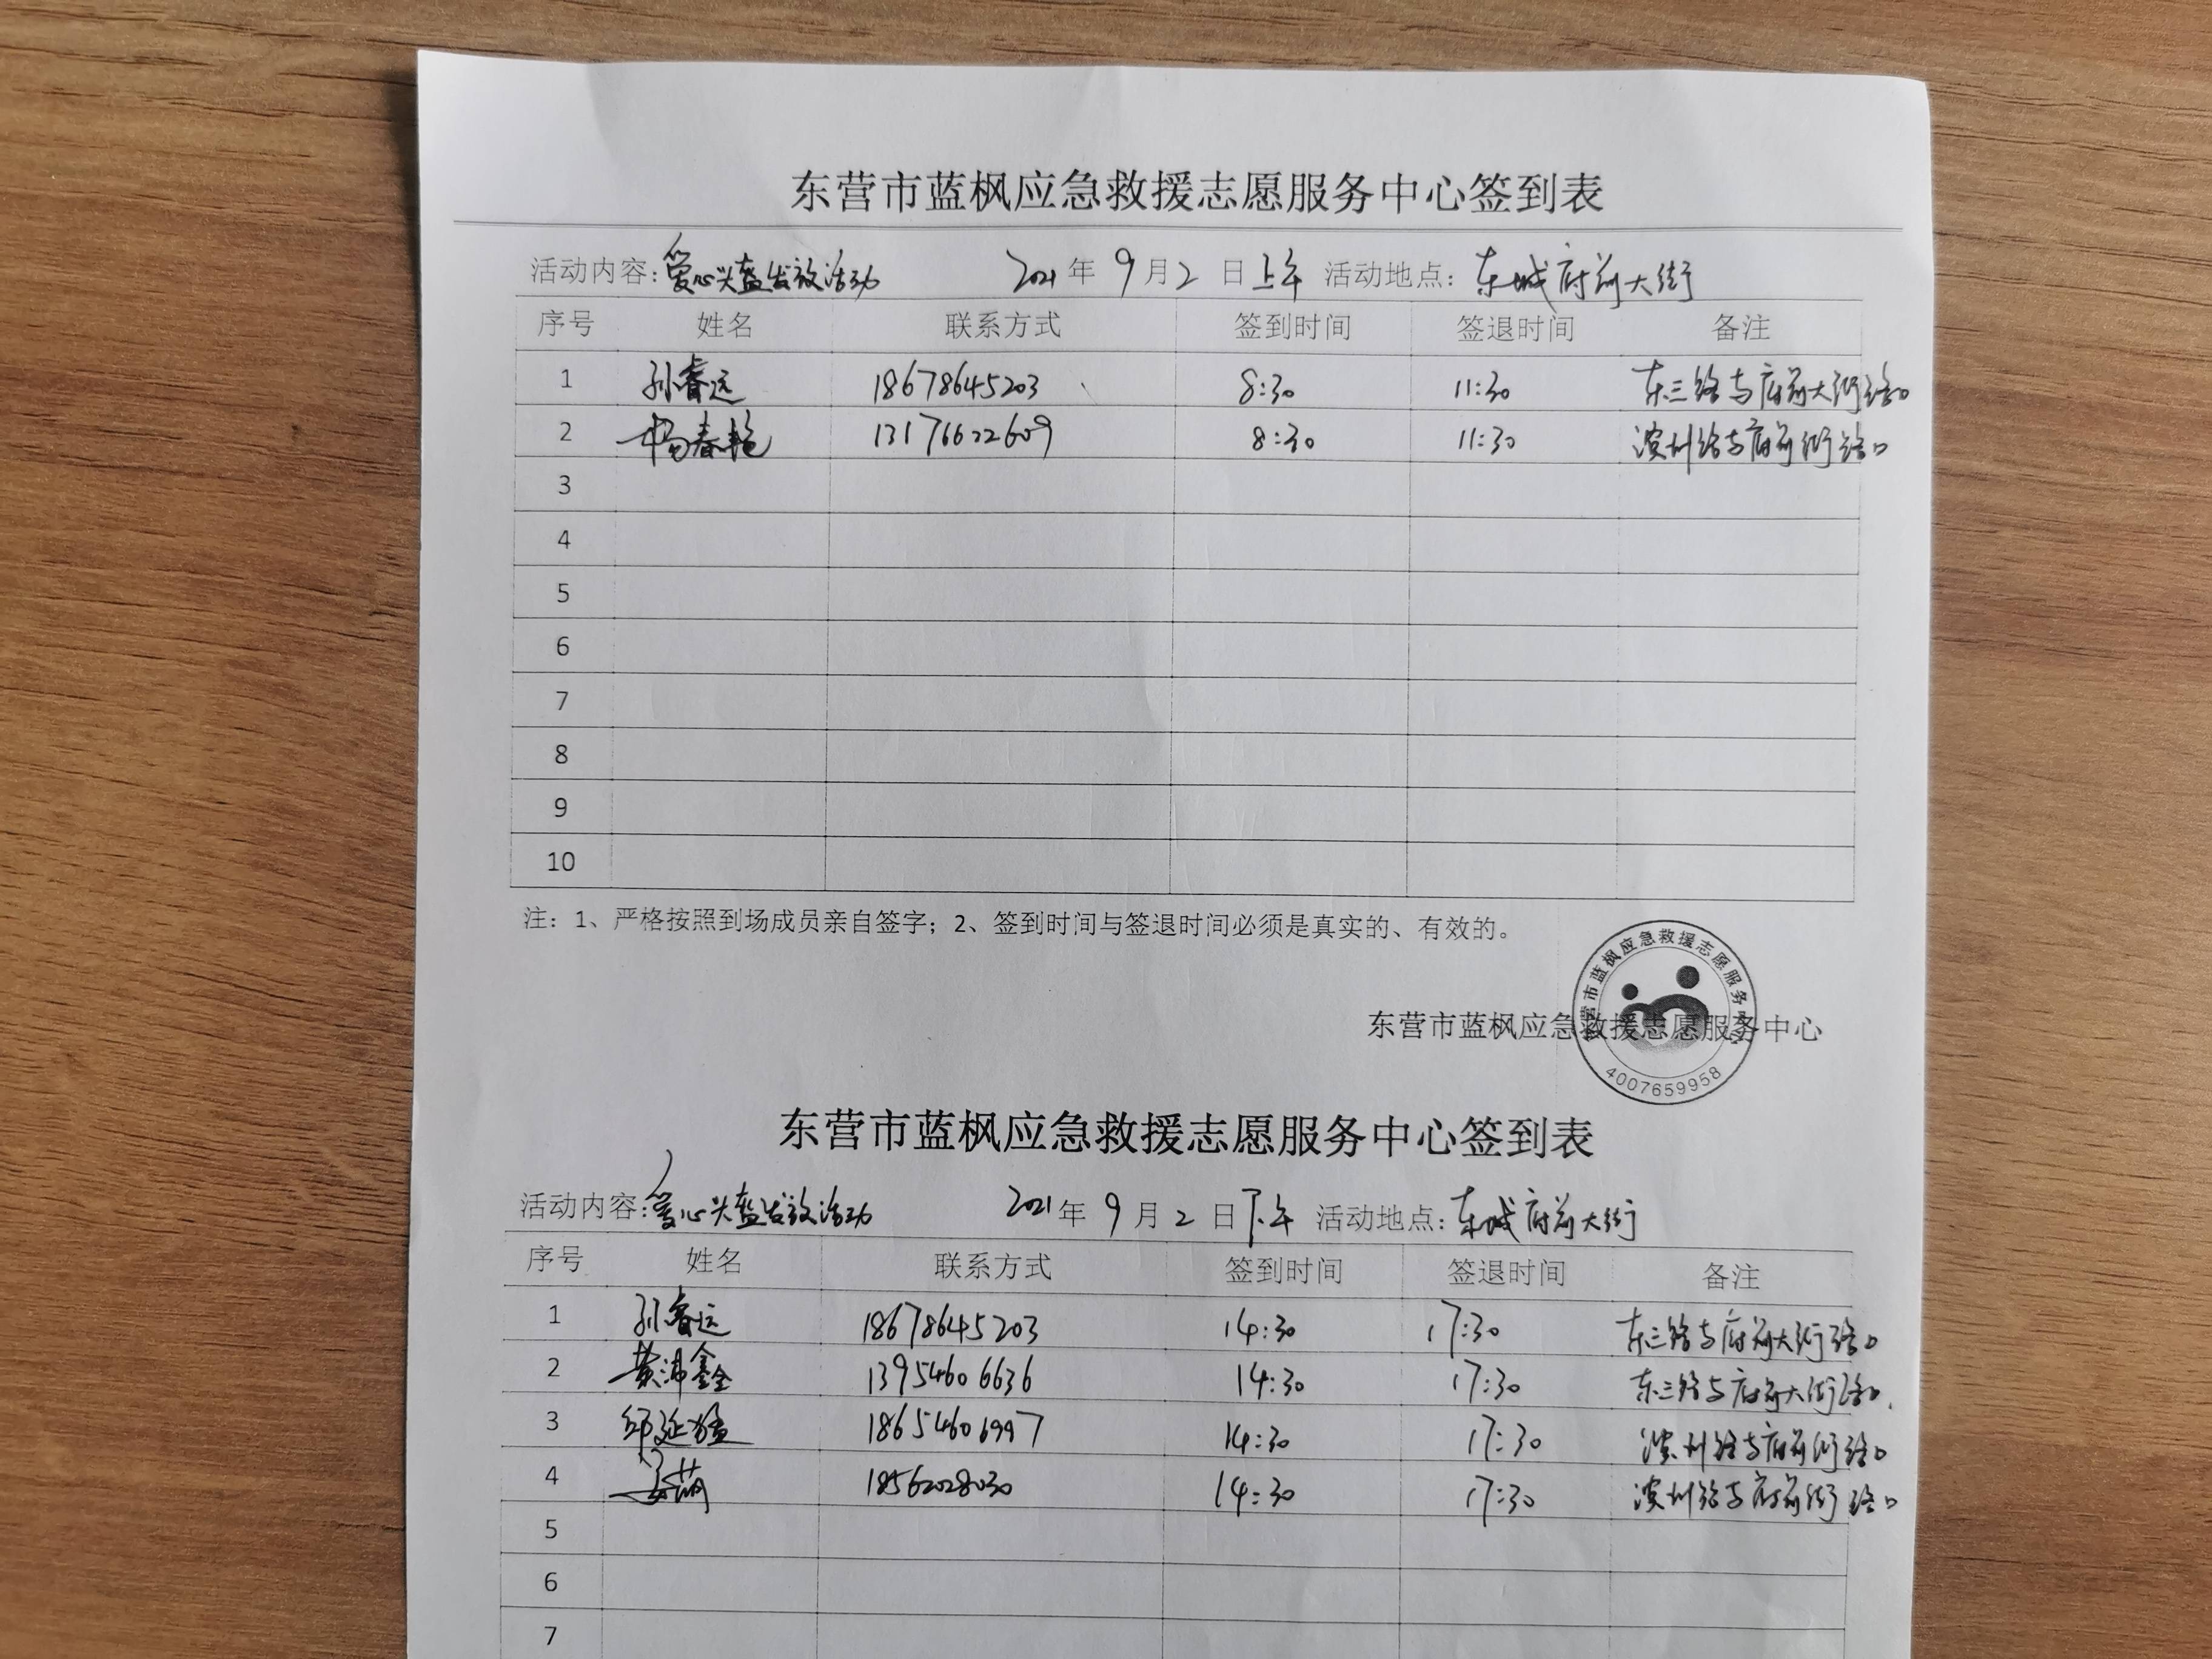 东营市蓝枫应急救援志愿服务中心签到表
活动内容:爱心头盔发放活动 2021年 9月2 日上午 活动地点: 东城府前大街
序号 姓名 联系方式 签到时间 签退时间 备注
1 孙睿远 18678645203 8:30 11:30 东三路与府前大街路口
2 杨春艳 13176622609 8:30 11:30 滨州路与府前街路口
3
4
5
6
7
8
9
10
注：1、严格按照到场成员亲自签字；2、签到时间与签退时间必须是真实的、有效的。
东营市蓝枫应急救援志愿服务中心
东营市蓝枫应急救援志愿服务中心
4007659958
东营市蓝枫应急救援志愿服务中心签到表
活动内容:爱心头盔发放活动 2021年 9月2日下午 活动地点: 东城府前大街
序号 姓名 联系方式 签到时间 签退时间 备注
1 孙睿远 18678645203 14:30 17:30 东三路与府前大街路口
2 黄沛鑫 13954606636 14:30 17:30 东三路与府前大街路口.
3 邱延猛 18654606997 14:30 17:30 滨州路与府前街路口
4 姜萌 18562028030 14:30 17:30 滨州路与府前街路口
5
6
7